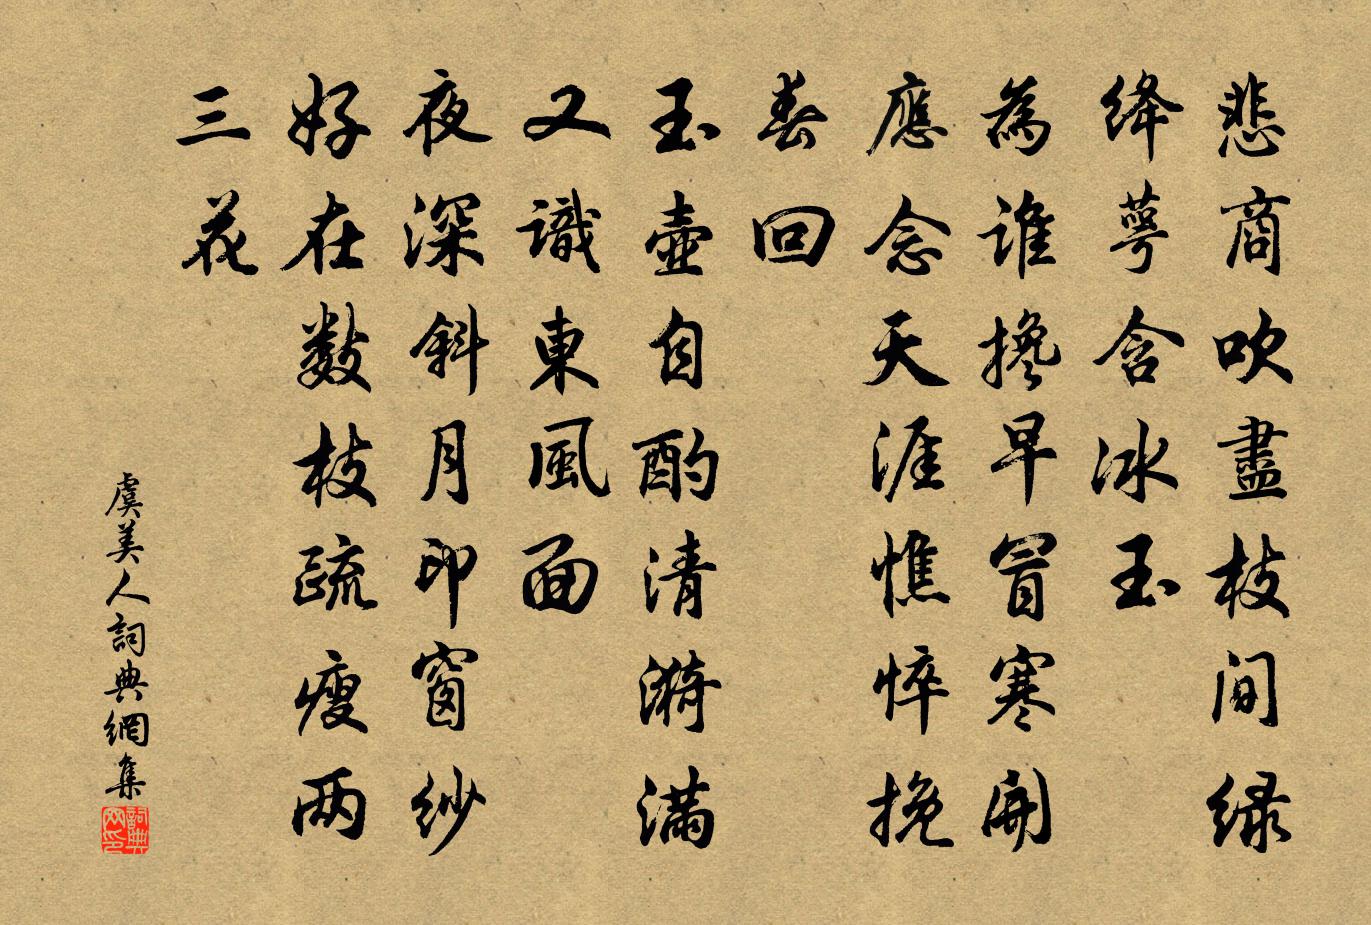 悲商吹盡枝间绿
绛萼含冰玉
為谁搀早冒寒開
應念天涯憔悴挽
春回
玉壺自酌清漪滿
又識東風面
夜深斜月印窗紗
好在数枝疏瘦两
三花
虞美人詞典網集
詞典网印